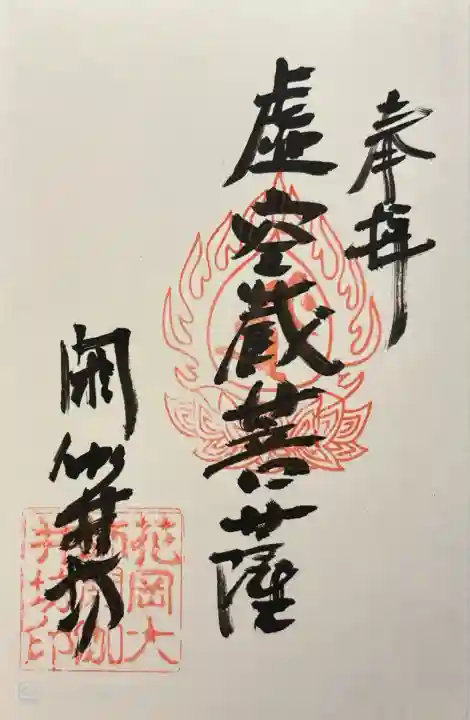 奉拝
虚空蔵菩薩
閼伽井坊
花岡大
師閼伽
井坊印